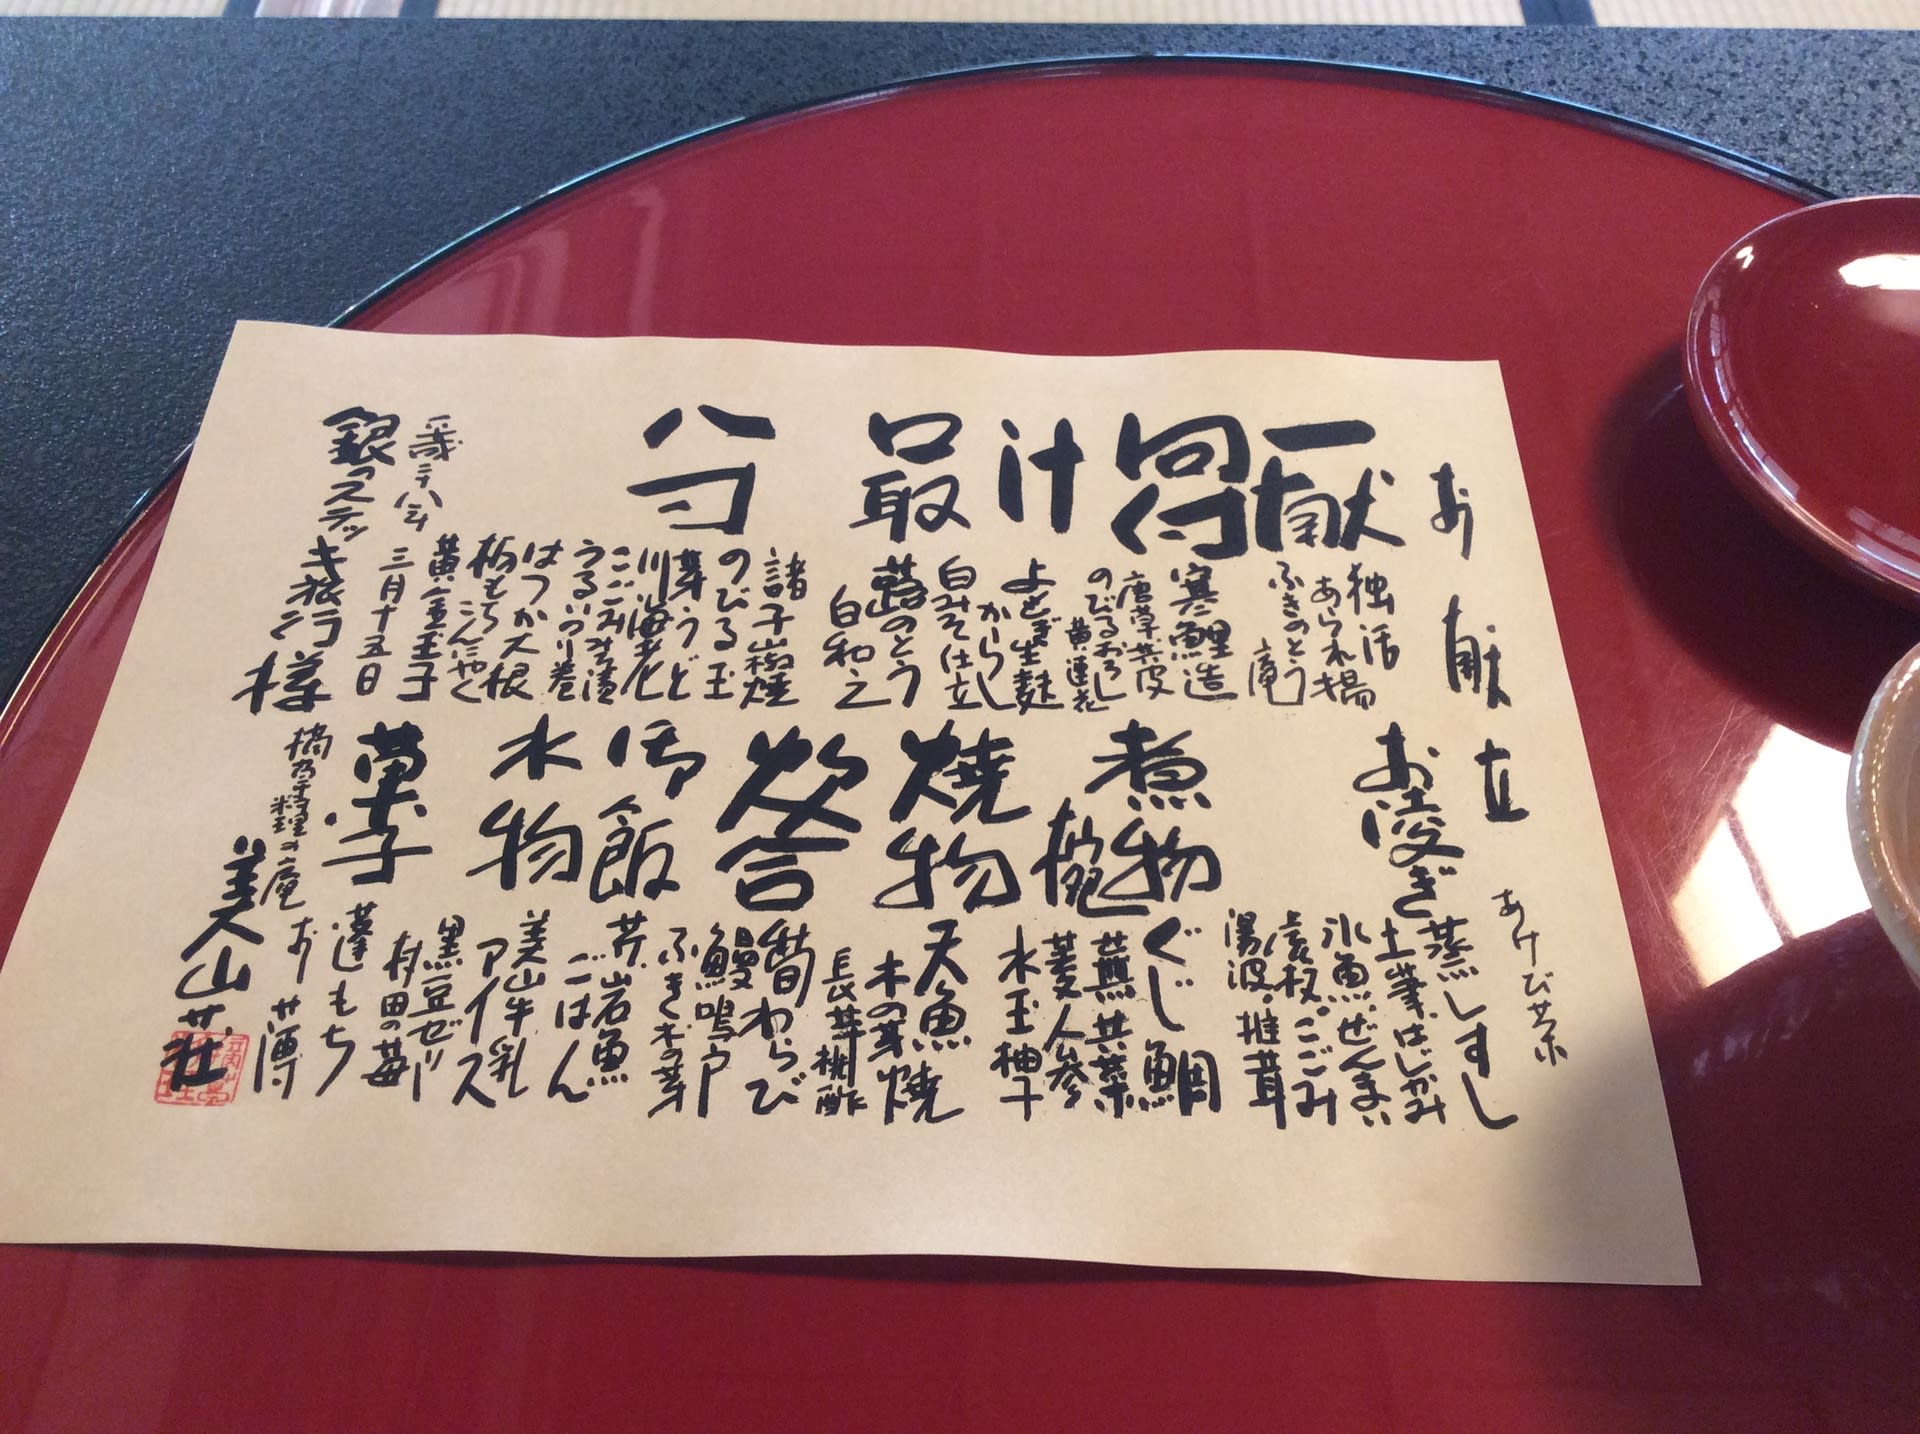 お献立
あけび茶
一献
独活
あられ揚
ふきのとう
向付
寒鯉造
唐草共皮
のびるおろし
黄蓮花
汁
よもぎ生麩
からし
白みそ仕立
最
蕗のとう
白和え
八寸
諸子山椒焼
のびる玉
芽うど
川海老
こごみみそ漬
うるい
はつか大根
栃もち
こんにゃく
黄金玉子
お凌ぎ
蒸しすし
土筆、はじかみ
氷魚、ぜんまい
こごみ
湯波・椎茸
煮物椀
ぐじ鯛
蕪共菜
菱人参
水玉柚子
焼物
天魚
木の芽焼
長芋
炊合
筍わらび
鰻鳴戸
ふき木の芽
御飯
芹岩魚
ごはん
水物
美山牛乳
アイス
黒豆ゼリー
村田の苺
菓子
蓬もち
お薄
三月十五日
銀のステッキ旅行様
摘草料理の庵
美山荘